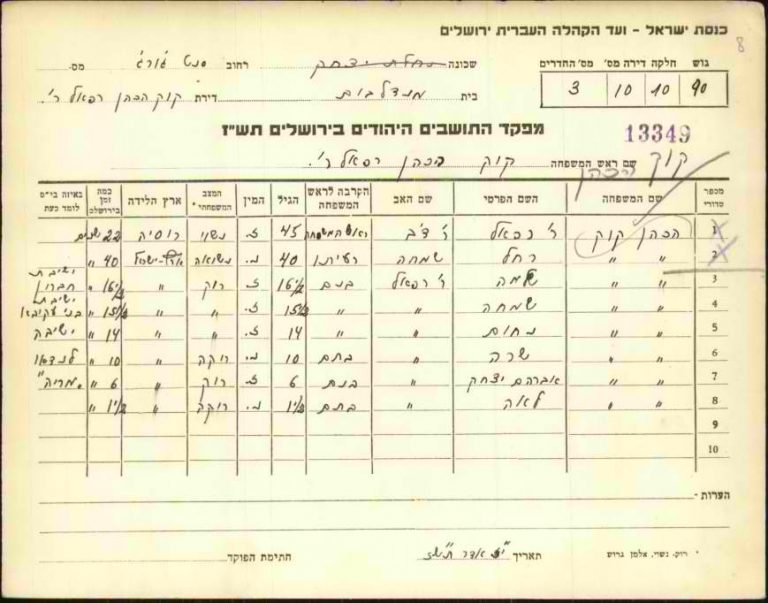 כנסת ישראל - ועד הקהלה העברית ירושלים
8
גוש חלקה דירה מס׳ מס׳ החדרים
90 10 10 3
שכונה נחלת יצחק רחוב סנט ג׳ורג׳ מס׳
בית מנדלבום דירת קוק הכהן רפאל ר׳.
מפקד התושבים היהודים בירושלים תש״ז
13349
שם ראש המשפחה קוק הכהן רפאל ר׳.
קוק הכהן
מספר סדורי שם המשפחה השם הפרטי שם האב הקרבה לראש המשפחה הגיל המין המצב המשפחתי* ארץ הלידה כמה זמן בירושלים באיזה בי״ס לומד כעת
1 הכהן קוק ר׳ רפאל ר׳ דב ראש המשפחה 45 ז. נשוי רוסיה 22 שנים
2 " " רחל שמחה רעיתו 40 נ. נשואה ארץ-ישראל 40 "
3 " " שלמה ר׳ רפאל בנם 16 1/2 ז. רוק " 16 1/2 " ישיבת חברון
4 " " שמחה " " 15 1/2 ז. " " 15 1/2 " ישיבת בני עקיבא
5 " " נחום " " 14 ז. " " 14 " ישיבה
6 " " שרה " בתם 10 נ. רוקה " 10 " לנדאו
7 " " אברהם יצחק " בנם 6 ז. רוק " 6 " "מוריה"
8 " " לאה " בתם 1 1/2 נ. רוקה " 1 1/2 "
9
10
הערות -
* רוק, נשוי, אלמן גרוש תאריך אדר תש״ז חתימת הפוקד